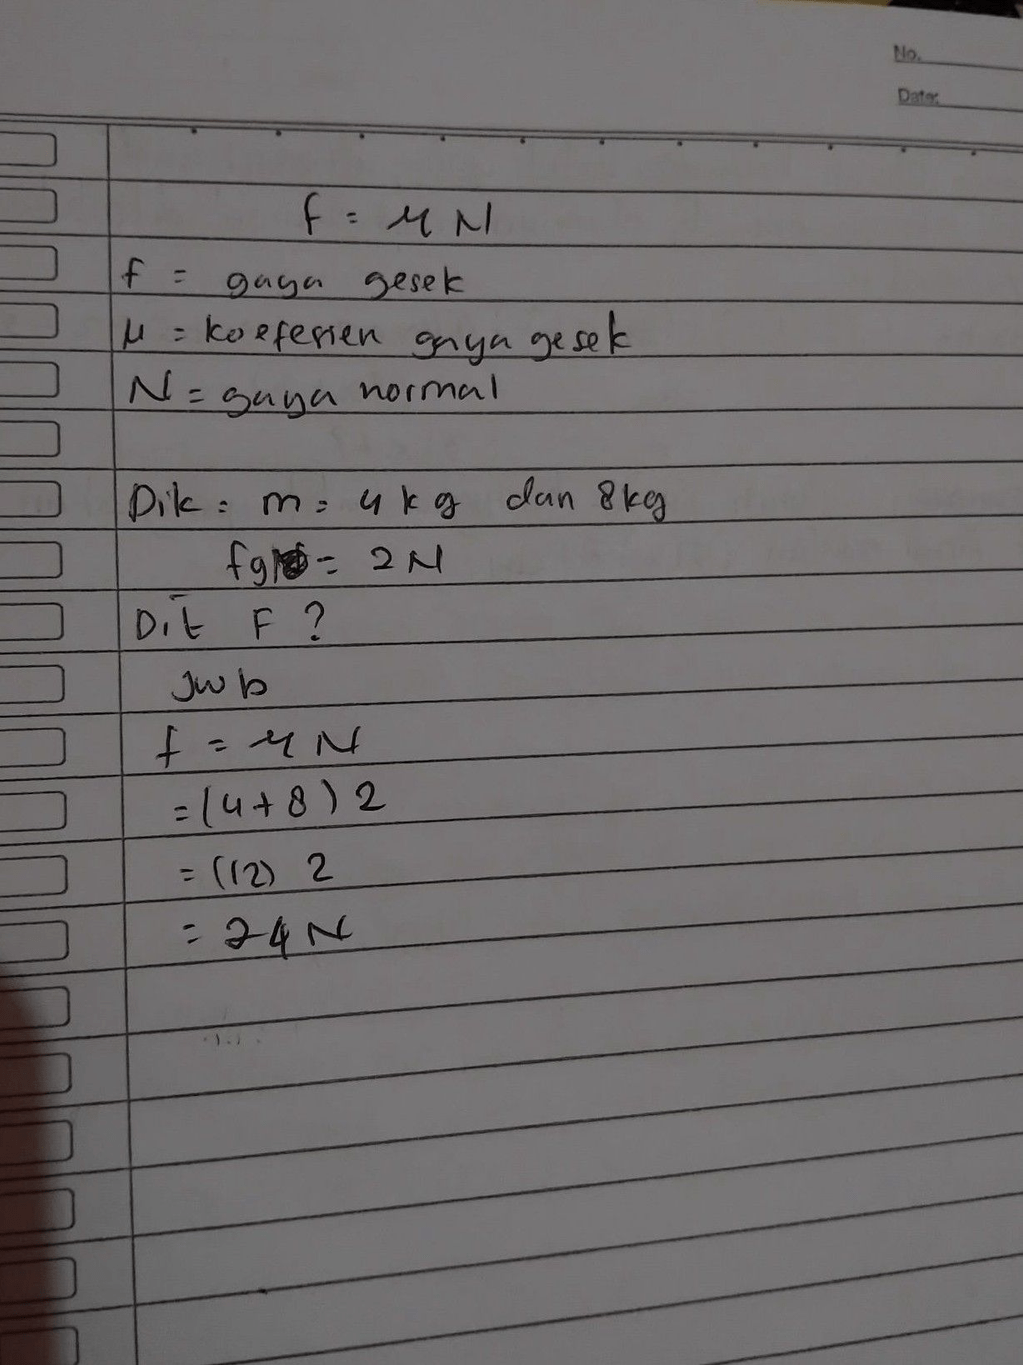 No.
Date:
f = μ N
f = gaya gesek
μ = koefesien gaya gesek
N = gaya normal
Dik : m = 4 kg dan 8 kg
= 2 N
Dit F ?
Jwb
f = μ N
= (4 + 8) 2
= (12) 2
= 24 N